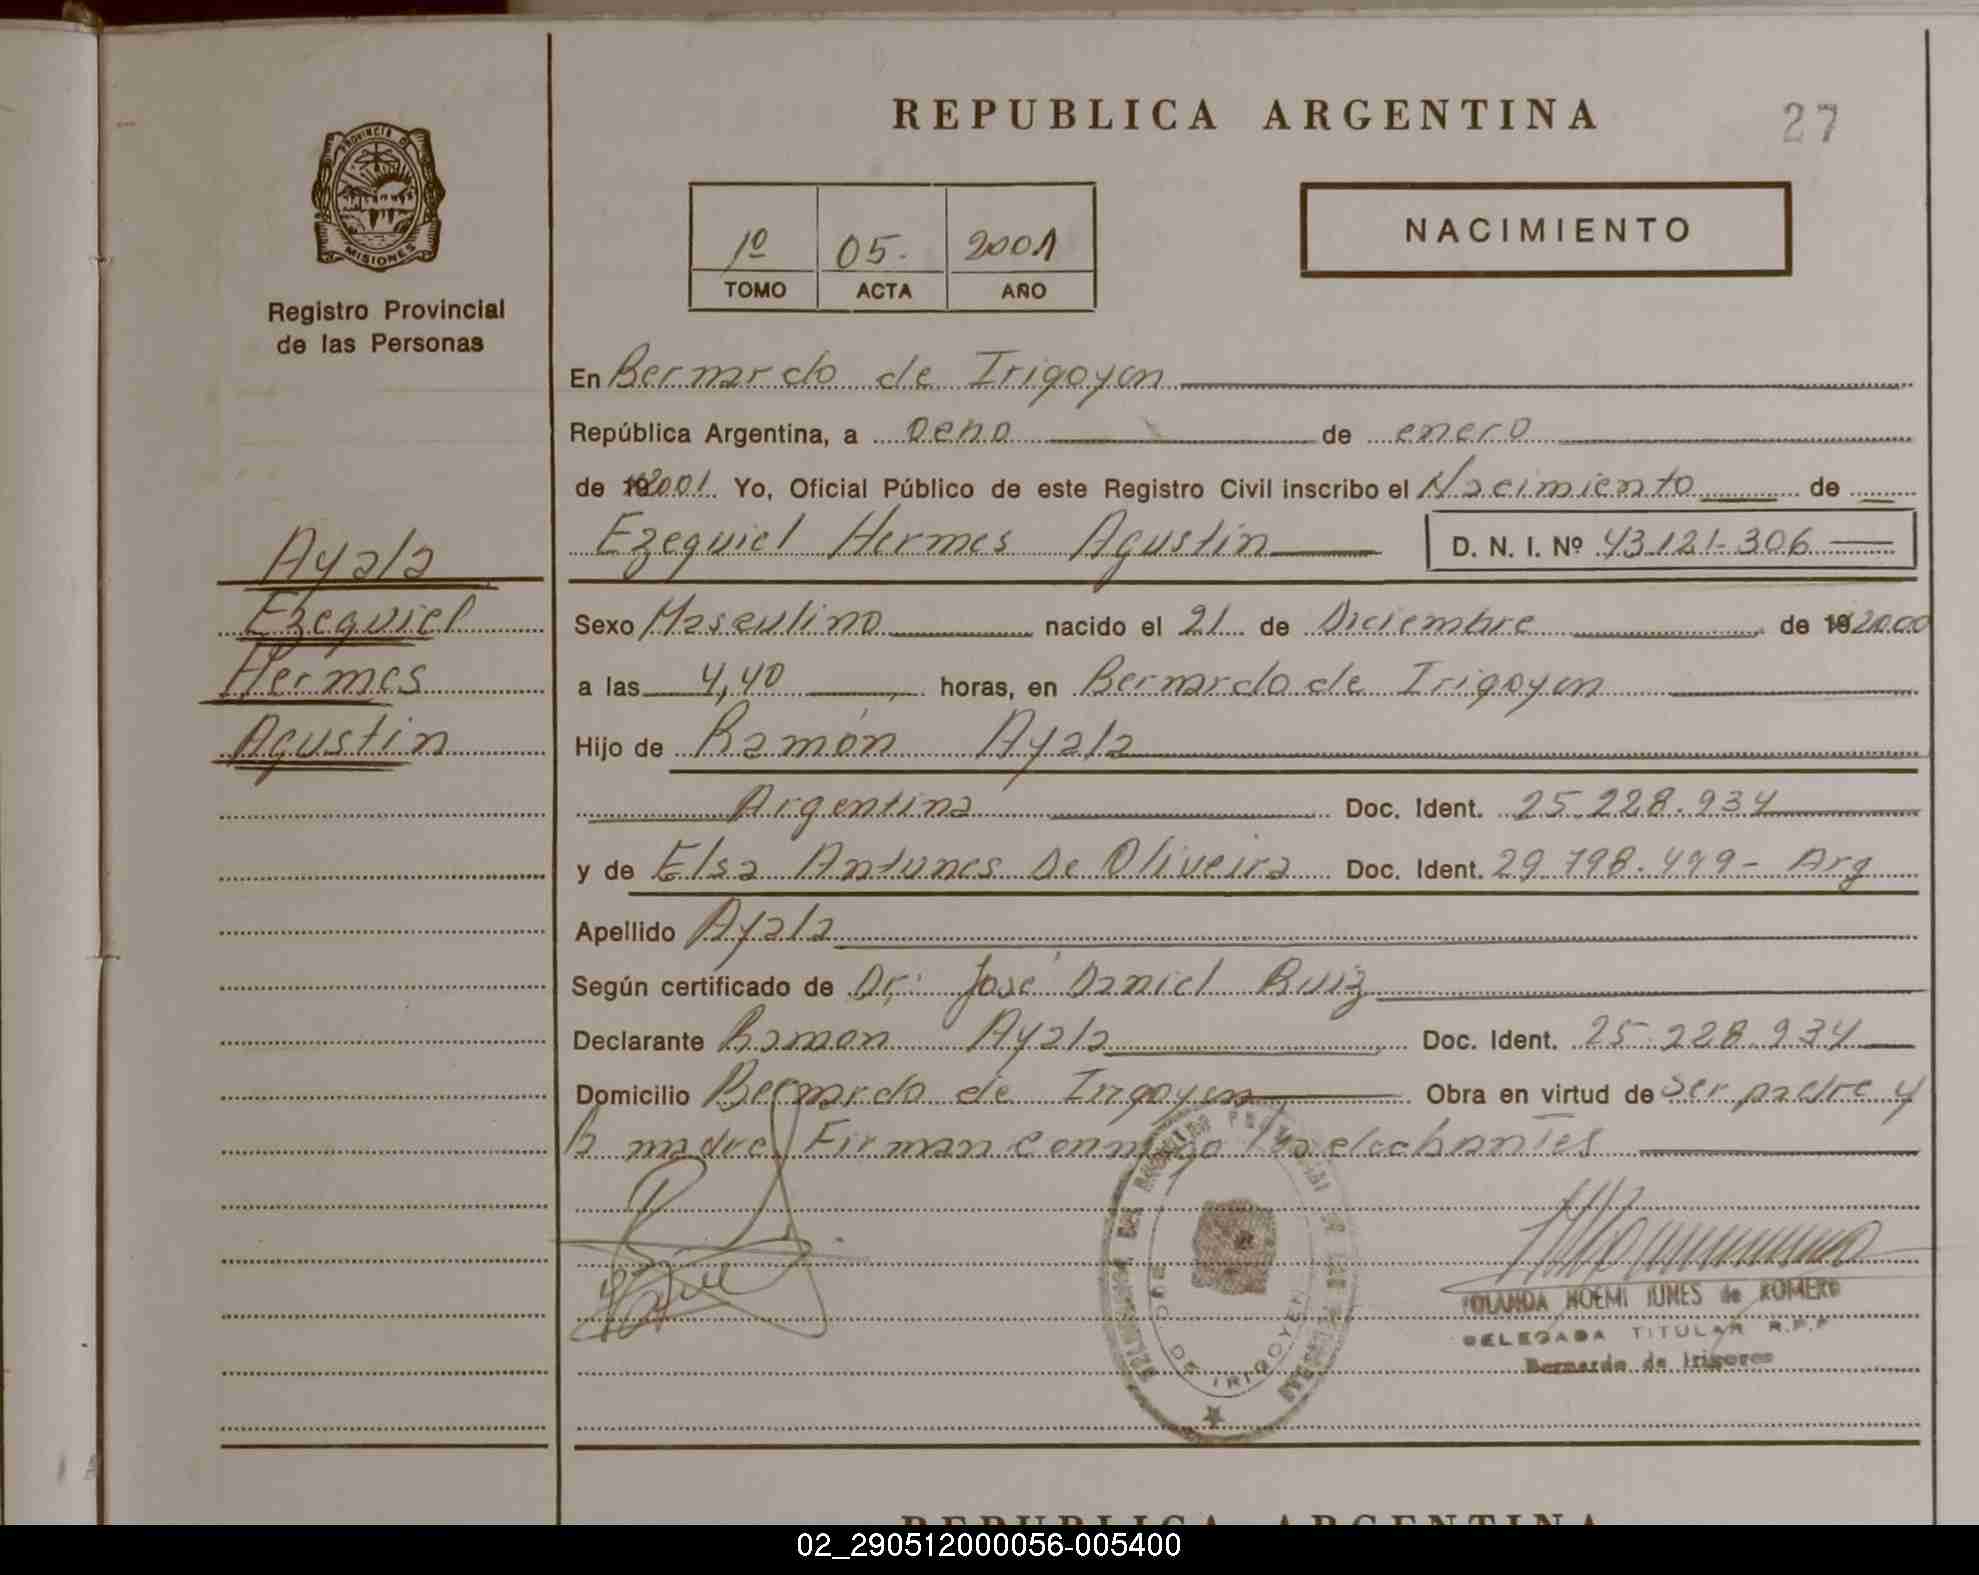 REPUBLICA ARGENTINA
27
PROVINCIA D
MISIONES
Registro Provincial
de las Personas
1º 05. 2001
TOMO ACTA AÑO
NACIMIENTO
En Bernardo de Irigoyen
República Argentina, a ocho de enero
de 192001. Yo, Oficial Público de este Registro Civil inscribo el Nacimiento de
Ezequiel Hermes Agustin D. N. I. Nº 43.121.306
Ayala
Ezequiel
Hermes
Agustin
Sexo Masculino nacido el 21 de Diciembre de 192000
a las 4,40 horas, en Bernardo de Irigoyen
Hijo de Ramón Ayala
Argentina Doc. Ident. 25.228.934
y de Elsa Antunes De Oliveira Doc. Ident. 29.798.499- Arg
Apellido Ayala
Según certificado de Dr. José Daniel Ruiz
Declarante Ramon Ayala Doc. Ident. 25.228.934
Domicilio Bernardo de Irigoyen Obra en virtud de ser padre y
la madre Firman conmigo
DE IRIGOYEN
YOLANDA NOEMI IUNES de ROMERO
DELEGADA TITULAR R.P.P
Bernardo de Irigoyen
REPUBLICA ARGENTINA
02_290512000056-005400